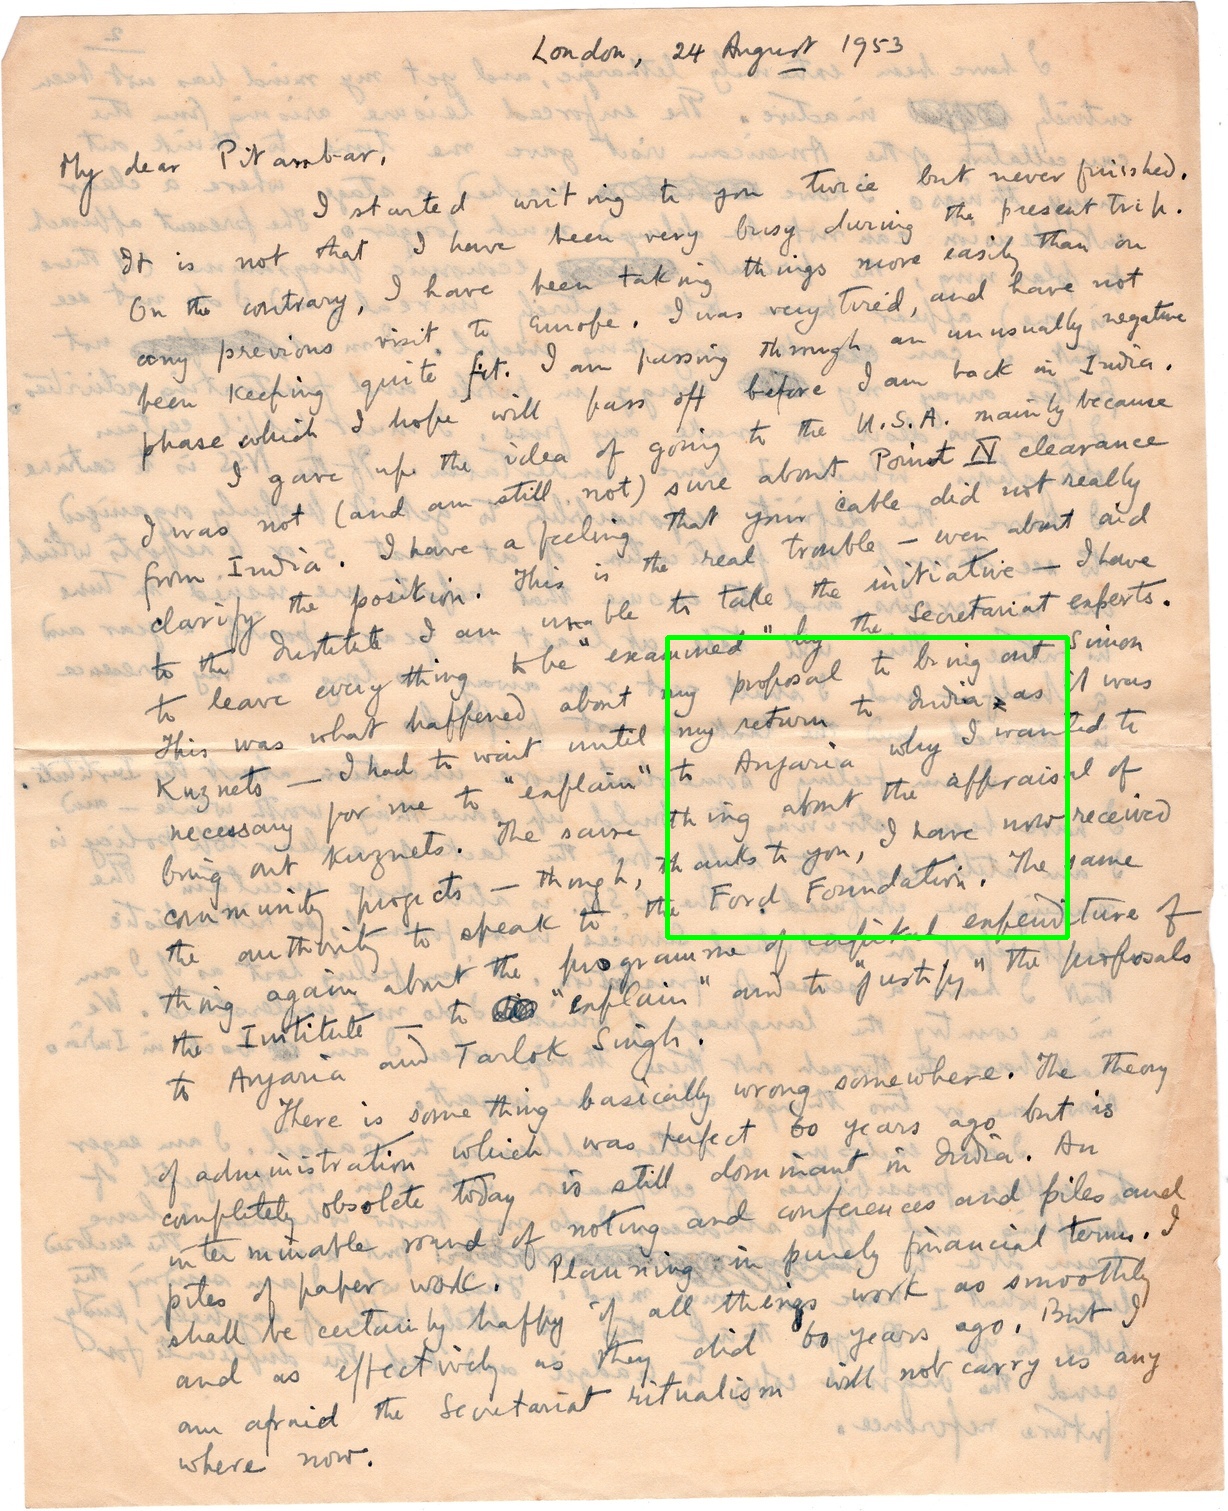 London, 24 August 1953
My dear Pitambar,
I started writing to you twice but never finished.
It is not that I have been very busy during the present trip.
On the contrary, I have been taking things more easily than on
any previous visit to Europe. I was very tired, and have not
been keeping quite fit. I am passing through an unusually negative
phase which I hope will pass off before I am back in India.
I gave up the idea of going to the U.S.A. mainly because
I was not (and am still not) sure about Point IV clearance
from India. I have a feeling that your cable did not really
clarify the position. This is the real trouble — even about aid
to the Institute I am unable to take the initiative — I have
to leave every thing to be "examined" by the Secretariat experts.
This was what happened about my proposal to bring out Simon
Kuznets — I had to wait until my return to India as it was
necessary for me to "explain" to Anjaria why I wanted to
bring out Kuznets. The same thing about the appraisal of
community projects — though, thanks to you, I have now received
the authority to speak to the Ford Foundation. The same
thing again about the programme of capital expenditure of
the Institute — to "explain" and to "justify" the proposals
to Anjaria and Tarlok Singh.
There is something basically wrong somewhere. The theory
of administration which was perfect 60 years ago but is
completely obsolete today is still dominant in India. An
interminable round of noting and conferences and piles and
piles of paper work. Planning in purely financial terms. I
shall be certainly happy if all things work as smoothly
and as effectively as they did 60 years ago. But I
am afraid the Secretariat ritualism will not carry us any
where now.